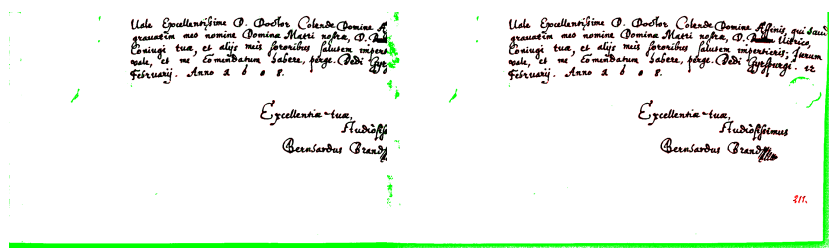 Vale Excellentissime D. Doctor Colende Domine
grauatim meo nomine Domina Matri nostra, D.
Coniugi tuæ, et alijs meis sororibus salutem
vale, et me Comendatum habere, perge. Dedi
Februarij. Anno 1608.
Excellentiæ tuæ,
Bernhardus Brand
Vale Excellentissime D. Doctor Colende Domine Affinis, qui
grauatim meo nomine Domina Matri nostra, D. Uitrico,
Coniugi tuæ, et alijs meis sororibus salutem impertieris; Iterum
vale, et me Comendatum habere, perge. Dedi 12
Februarij. Anno 1608.
Excellentiæ tuæ,
Studiosissimus
Bernhardus Brand
211.